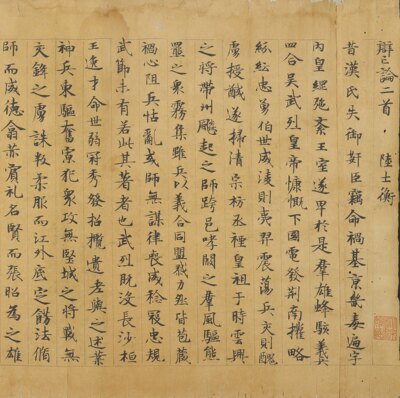 辯亡論二首 陸士衡
昔漢氏失御奸臣竊命禍基京畿毒遍宇
內皇綱弛紊王室遂卑於是羣雄蜂駭義兵
四合吳武烈皇帝慷慨下國電發荊南權略
紛紜忠勇伯世威稜則夷羿震蕩兵交則醜
虜授馘遂掃清宗枋丞禋皇祖于時雲興
之將帶州飈起之師跨邑哮闞之羣風驅熊
羆之衆霧集雖兵以義合同盟戮力然皆苞藏
禍心阻兵怙亂或師無謀律喪威稔寇忠規
武節未有若此其著者也武烈既沒長沙桓
王逸才命世弱冠秀發招攬遺老與之述業
神兵東驅奮寡犯衆攻無堅城之將戰無
交鋒之虜誅叛柔服而江外底定飭法脩
師而威德翕赫賓禮名賢而張昭為之雄